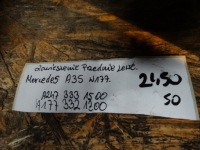 Zawieszenie Przednie Lewe.
Mercedes A35 W177.
2450
A247 333 1500
50
A177 332 1200